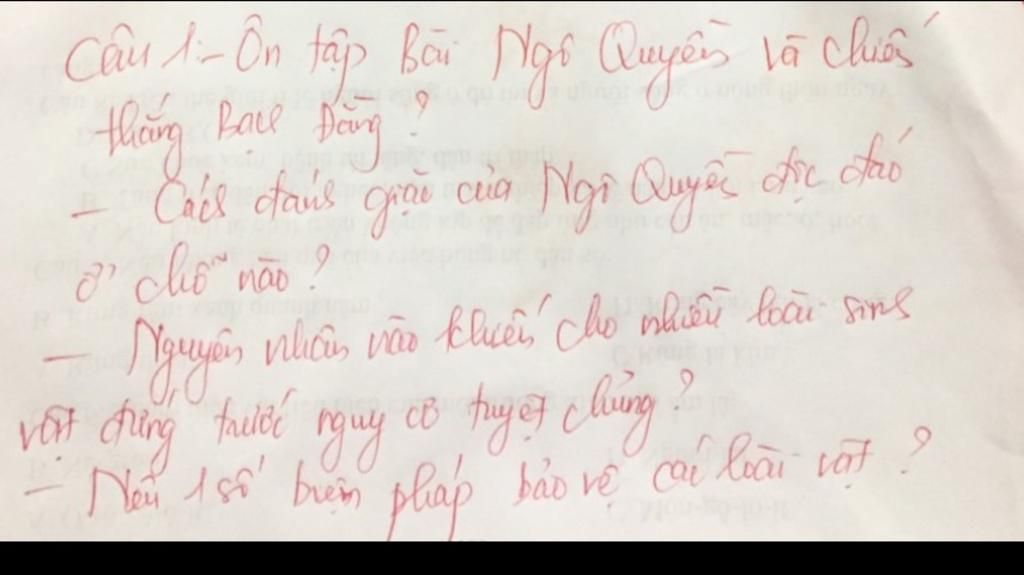 Câu 1:- Ôn tập Bài Ngô Quyền và chiến
thắng Bạch Đằng?
- Cách đánh giặc của Ngô Quyền độc đáo
ở chỗ nào?
- Nguyên nhân nào khiến cho nhiều loài sinh
vật đứng trước nguy cơ tuyệt chủng?
- Nêu 1 số biện pháp bảo vệ các loài vật?